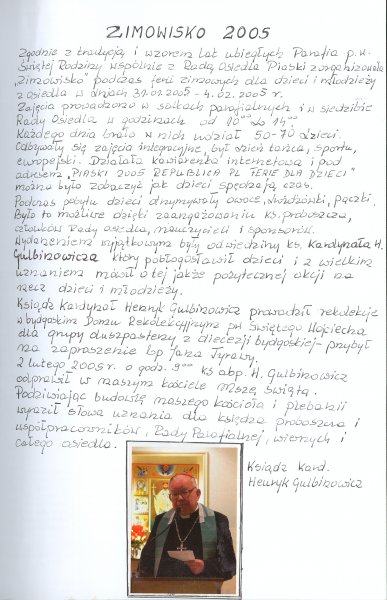 ZIMOWISKO 2005
Zgodnie z tradycją i wzorem lat ubiegłych Parafia p.w.
Świętej Rodziny wspólnie z Radą Osiedla Piaski zorganizowała
„Zimowisko" podczas ferii zimowych dla dzieci i młodzieży
z osiedla w dniach 31.01.2005 - 4.02.2005 r.
Zajęcia prowadzono w salkach parafialnych i w siedzibie
Rady Osiedla w godzinach od 10⁰⁰ do 14⁰⁰
Każdego dnia brało w nich udział 50-70 dzieci.
Odbywały się zajęcia integracyjne, był dzień tańca, sportu,
europejski. Działała kawiarenka internetowa i pod
adresem „PIASKI 2005 REPUBLICA PL FERIE DLA DZIECI"
można było zobaczyć jak dzieci spędzają czas.
Podczas pobytu dzieci otrzymywały owoce, drożdżówki, pączki.
Było to możliwe dzięki zaangażowaniu ks. proboszcza,
członków Rady osiedla, nauczycieli i sponsorów.
Wydarzeniem wyjątkowym były odwiedziny ks. Kardynała H.
Gulbinowicza który pobłogosławił dzieci i z wielkim
uznaniem mówił o tej jakże pożytecznej akcji na
rzecz dzieci i młodzieży.
Ksiądz Kardynał Henryk Gulbinowicz prowadził rekolekcje
w bydgoskim Domu Rekolekcyjnym pw Świętego Wojciecha
dla grupy duszpasterzy z diecezji bydgoskiej - przybył
na zaproszenie bp Jana Tyrawy.
2 lutego 2005 r. o godz. 9⁰⁰ ks abp. H. Gulbinowicz
odprawił w naszym kościele Mszę świętą.
Podziwiając budowlę naszego kościoła i plebanii
wyraził słowa uznania dla księdza proboszcza i
współpracowników, Rady Parafialnej, wiernych i
całego osiedla.
Ksiądz Kard.
Henryk Gulbinowicz